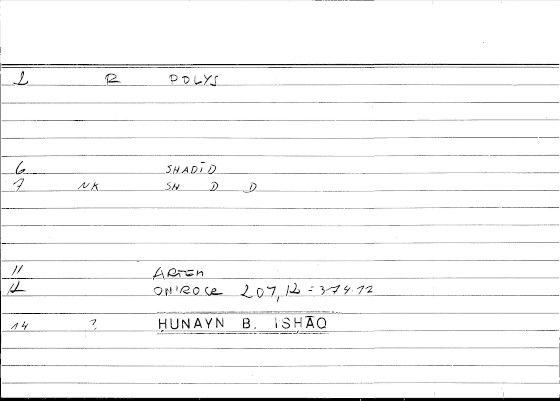 1 R POLYS
6 SHADĪD
7 NK SH D D
11 ARTEM
12 ONIROCR 207,12 = 374.12
14 ? ḤUNAYN B. ISḤĀQ